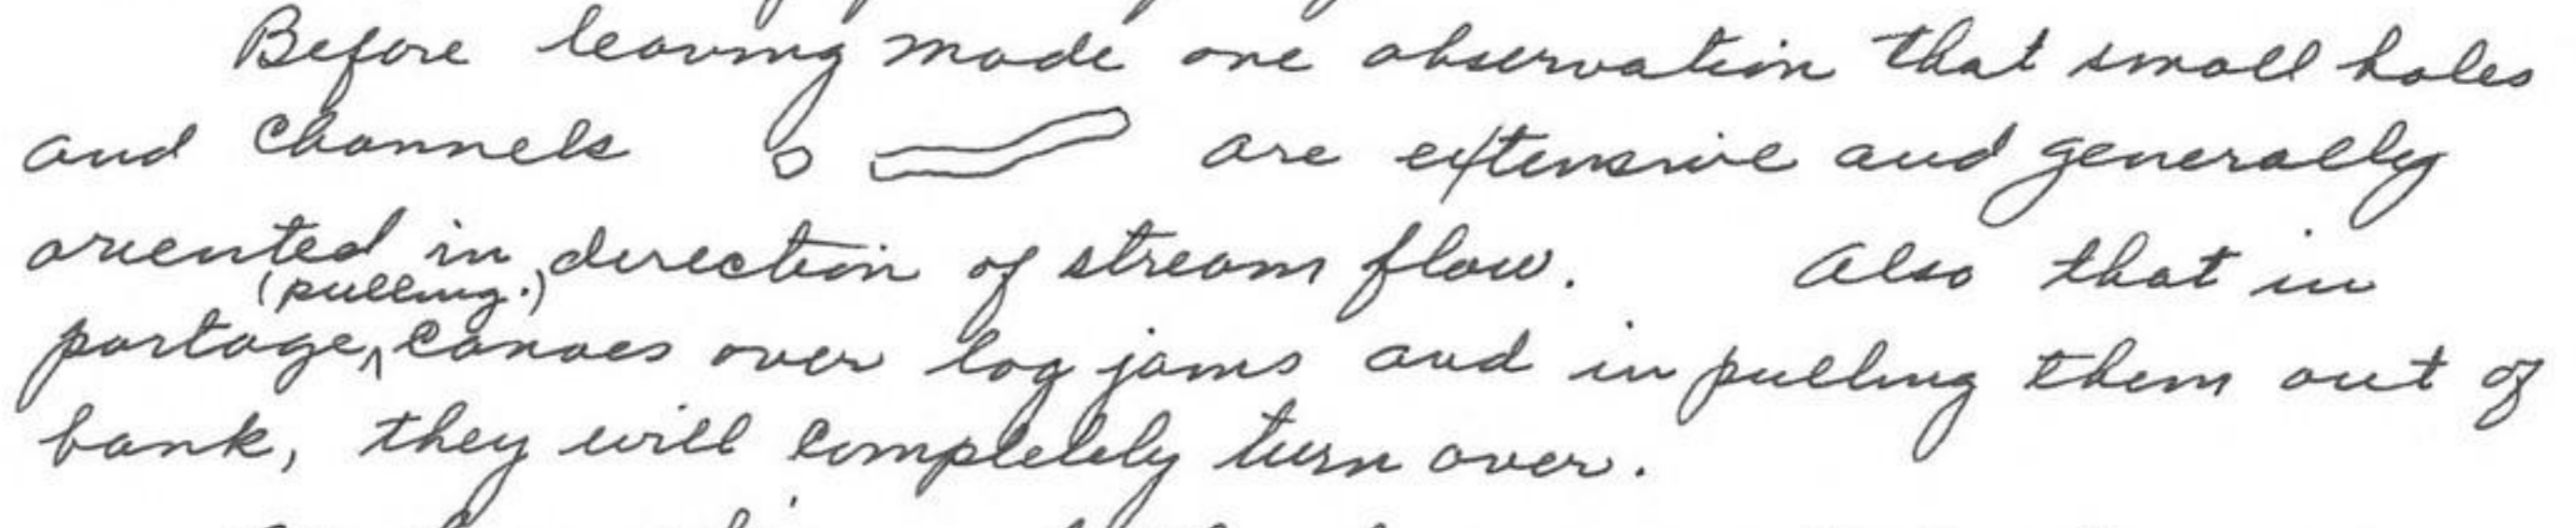 Before leaving made one observation that small holes
and channels are extensive and generally
oriented in direction of stream flow. Also that in
(pulling.)
portage, canoes over log jams and in pulling them out of
bank, they will completely turn over.